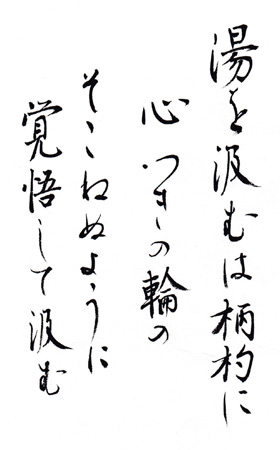 湯を汲むは柄杓に
心つきの輪の
そこねぬように
覚悟して汲む